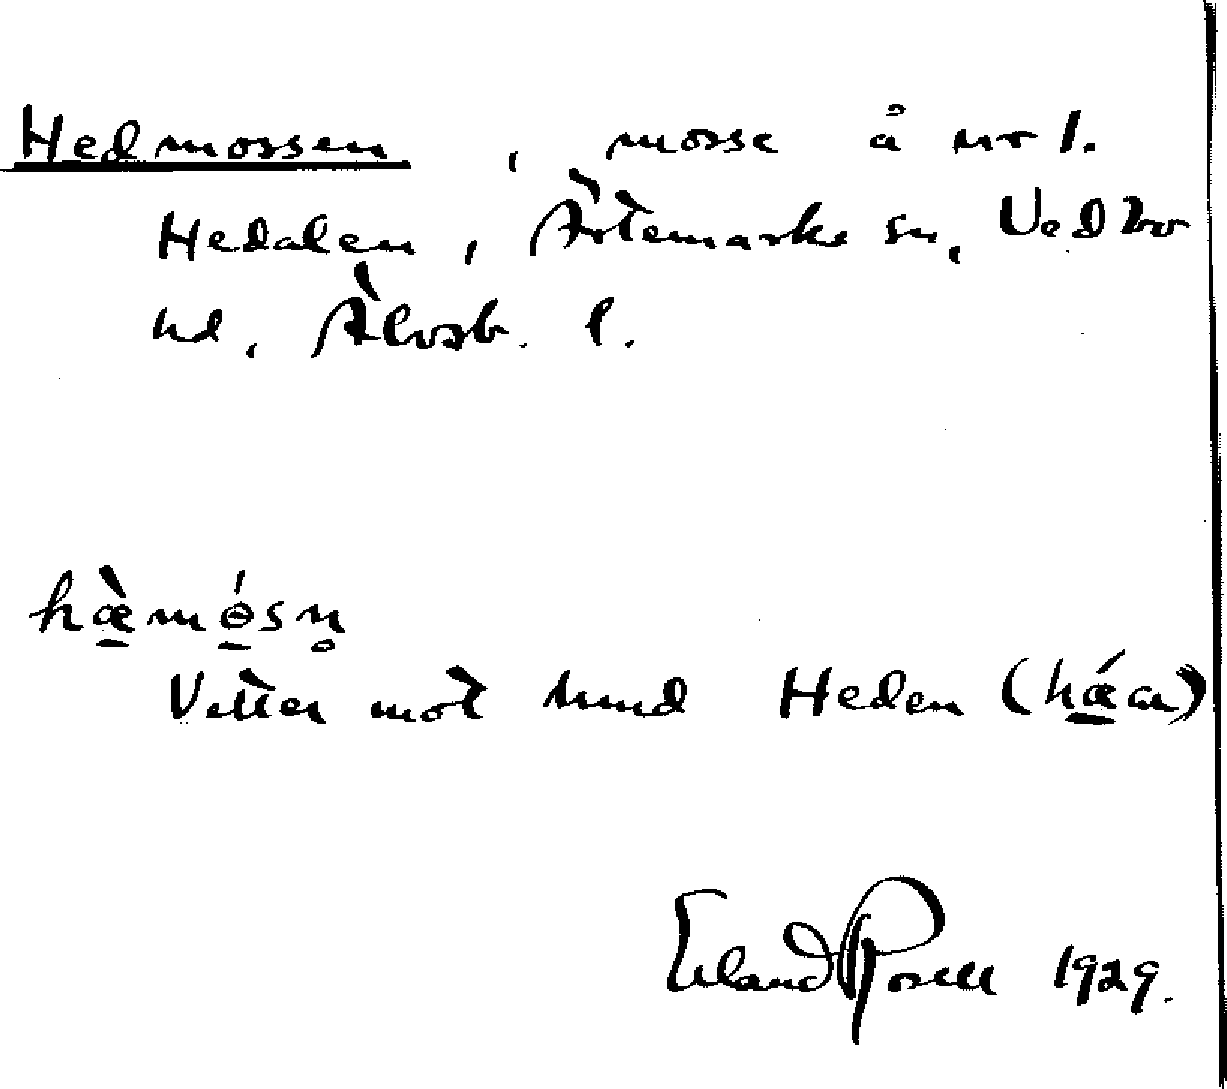 Hedmossen, mosse å nr 1.
Hedalen, Ärtemarks sn, Vedbo
hd, Älvsb. l.
hæ̀mɵ́sn̥
Vetter mot hmd Heden (hǽan)
Erland Rosell 1929.